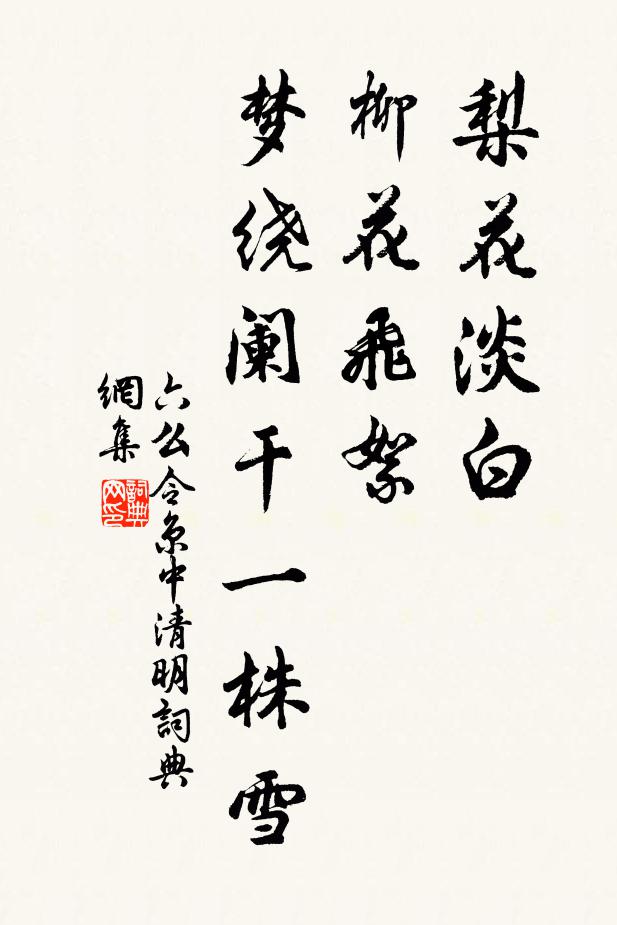 梨花淡白
柳花飛絮
梦绕阑干一株雪
六幺令京中清明詞典
網集
詞典
网印